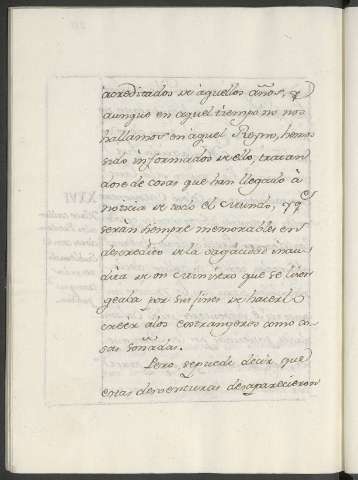 acreditados de aquellos años, y
aunque en aquel tiempo no nos
hallamos en aquel Reyno, hemos
sido informados de ello, tratan
dose de cosas que han llegado à
noticia de todo el Mundo, y q.e
seràn siempre memorables en
descredito de la sagacidad inau
dita de un Ministro que se lison
geaba por sus fines de hacerl
creer a los estrangeros como co
sas soñadas.
Pero, se puede decir que
estas desventuras desaparecieron
XXVI